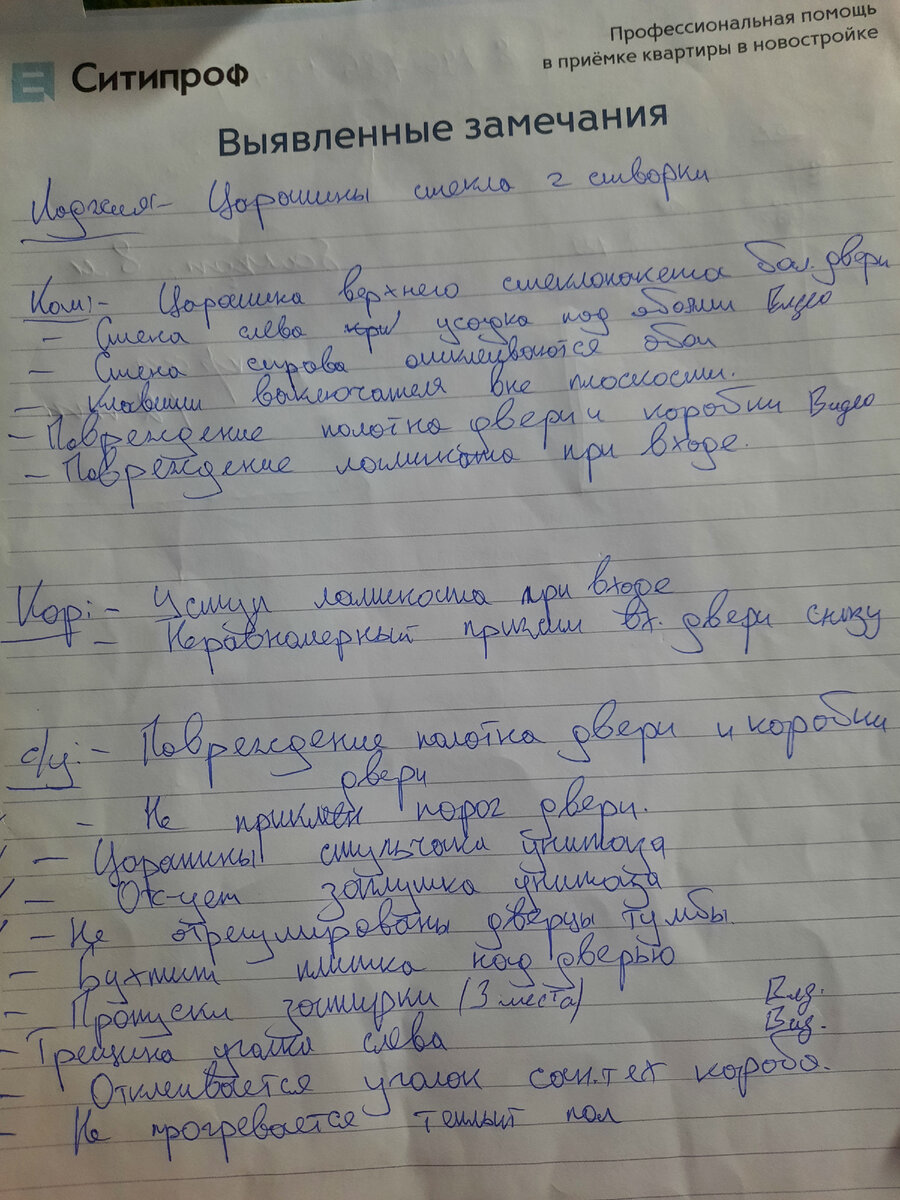 Профессиональная помощь
в приёмке квартиры в новостройке
Ситипроф
Выявленные замечания
Лоджия:- Царапины стекла 2 створки
Ком:- Царапина верхнего стеклопакета бал. двери
- Стена слева усадка под обоями Видео
- Стена справа отклеиваются обои
- Клавиши выключателя вне плоскости.
- Повреждение полотна двери и коробки Видео
- Повреждение ламината при входе.
Кор:- Уступ ламината при входе
- Неравномерный прижим вх. двери снизу
с/у:- Повреждение полотна двери и коробки
двери
- Не приклеен порог двери.
- Царапины стульчака унитаза
- Отс-ует заглушка унитаза
- Не отрегулированы дверцы тумбы.
- Бухтит плитка над дверью
- Пропуски затирки (3 места) Вид.
- Трещина уголка слева Вид.
- Отклеивается уголок сан.тех короба.
- Не прогревается теплый пол